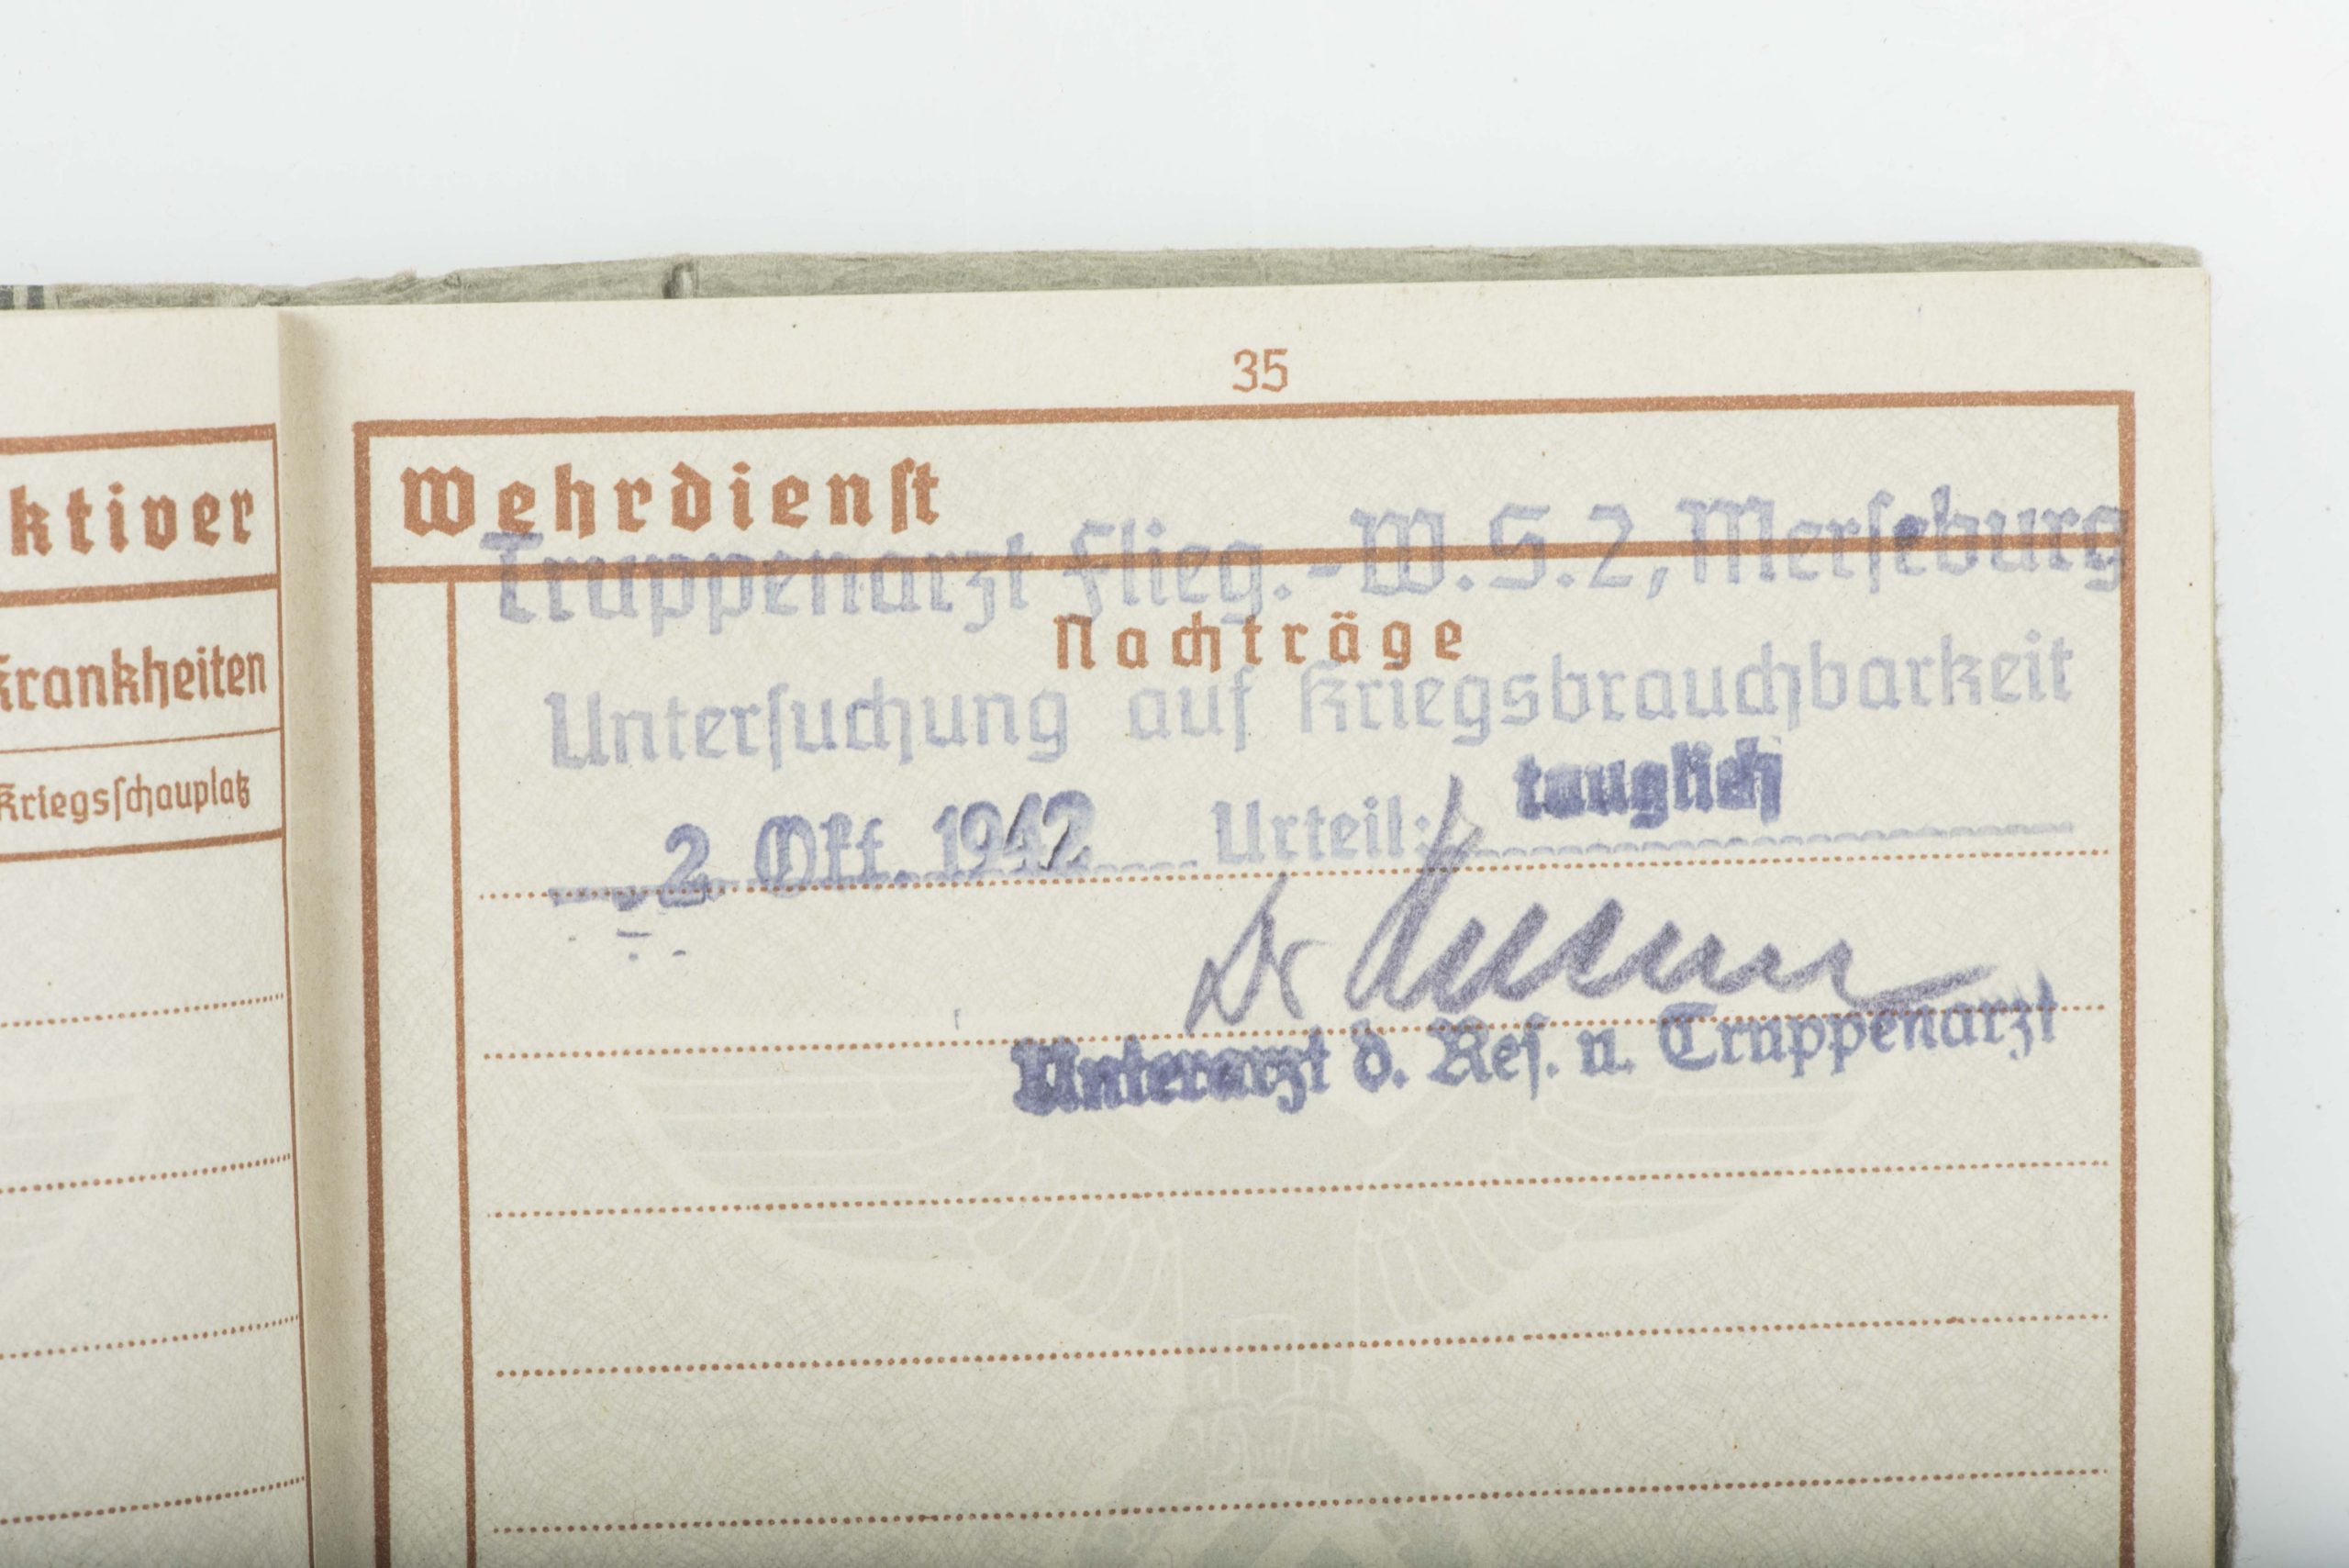 35
ktiver
Wehrdienst
Truppenarzt Flieg.-W.S.2, Merseburg
Nachträge
Krankheiten
Untersuchung auf Kriegsbrauchbarkeit
Kriegsschauplatz
tauglich
2. Okt. 1942 Urteil:
Dr
Unterarzt d. Res. u. Truppenarzt